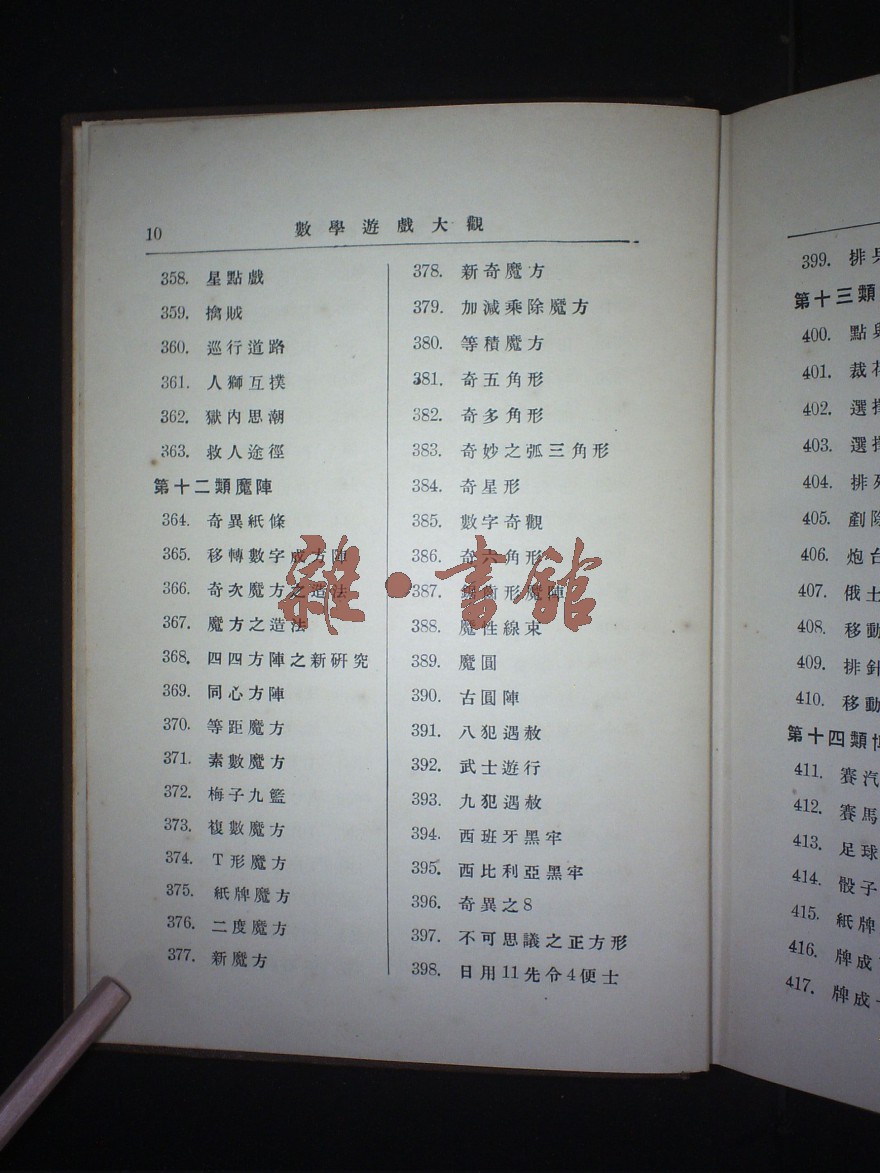 10
數學遊戲大觀
358. 星點戲
359. 擒賊
360. 巡行道路
361. 人獅互撲
362. 獄內思潮
363. 救人途徑
第十二類魔陣
364. 奇異紙條
365. 移轉數字成方陣
366. 奇次魔方之造法
367. 魔方之造法
368. 四四方陣之新研究
369. 同心方陣
370. 等距魔方
371. 素數魔方
372. 梅子九籃
373. 複數魔方
374. T形魔方
375. 紙牌魔方
376. 二度魔方
377. 新魔方
378. 新奇魔方
379. 加減乘除魔方
380. 等積魔方
381. 奇五角形
382. 奇多角形
383. 奇妙之弧三角形
384. 奇星形
385. 數字奇觀
386. 奇六角形
387. 形魔陣
388. 魔性線束
389. 魔圓
390. 古圓陣
391. 八犯遇赦
392. 武士遊行
393. 九犯遇赦
394. 西班牙黑牢
395. 西比利亞黑牢
396. 奇異之8
397. 不可思議之正方形
398. 日用11先令4便士
雜·書館
399. 排
第十三類
400. 點
401. 裁
402. 選
403. 選
404. 排
405. 剷除
406. 炮台
407. 俄士
408. 移動
409. 排針
410. 移動
第十四類
411. 賽汽
412. 賽馬
413. 足球
414. 骰子
415. 紙牌
416. 牌成
417. 牌成